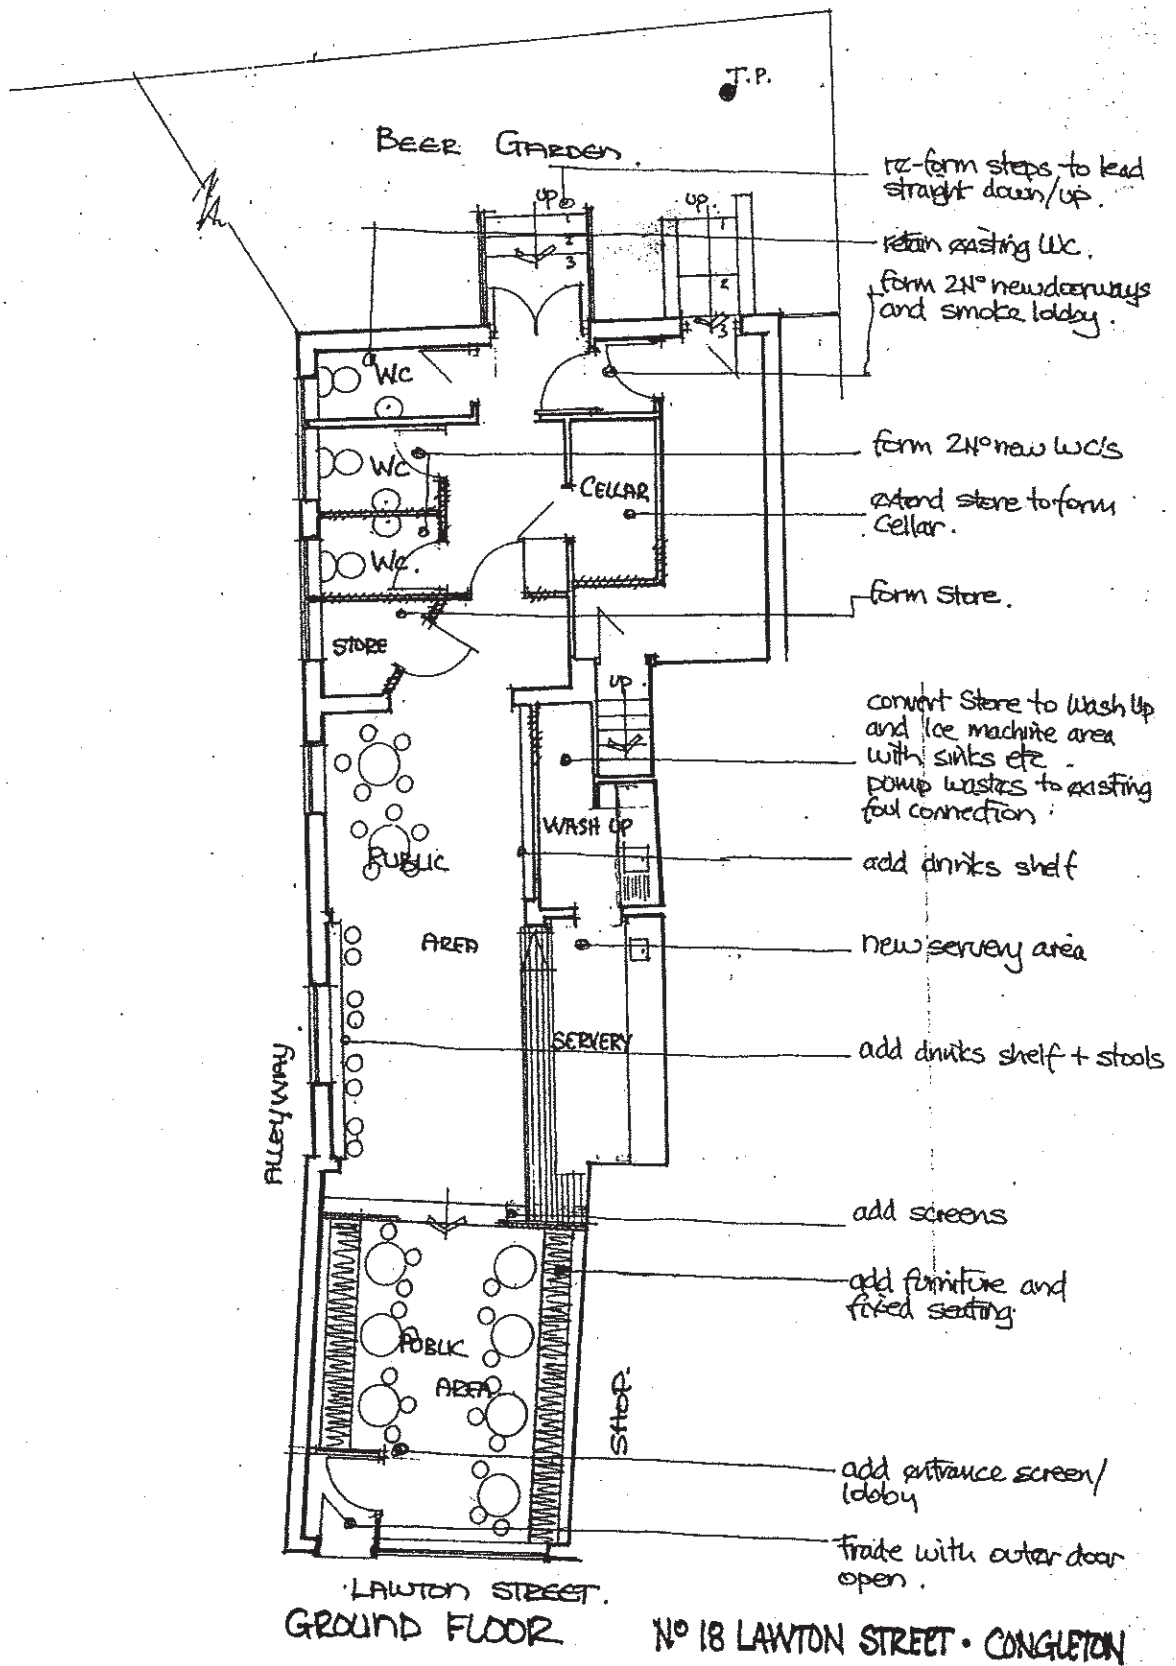 T.P.
BEER GARDEN.
re-form steps to lead
straight down/up.
UP
1
2
3
UP.
1
2
3
retain existing WC.
form 2No new doorways
and smoke lobby.
WC
form 2No new WC's
WC
CELLAR
extend store to form
Cellar.
WC.
form Store.
STORE
UP.
convert Store to Wash Up
and Ice machine area
with sinks etc.
pump wastes to existing
foul connection.
WASH UP
PUBLIC
AREA
add drinks shelf
new servery area
SERVERY
ALLEYWAY
add drinks shelf + stools
add screens
add furniture and
fixed seating.
PUBLIC
AREA
SHOP.
add entrance screen/
lobby
trade with outer door
open.
LAWTON STREET.
GROUND FLOOR
No 18 LAWTON STREET • CONGLETON